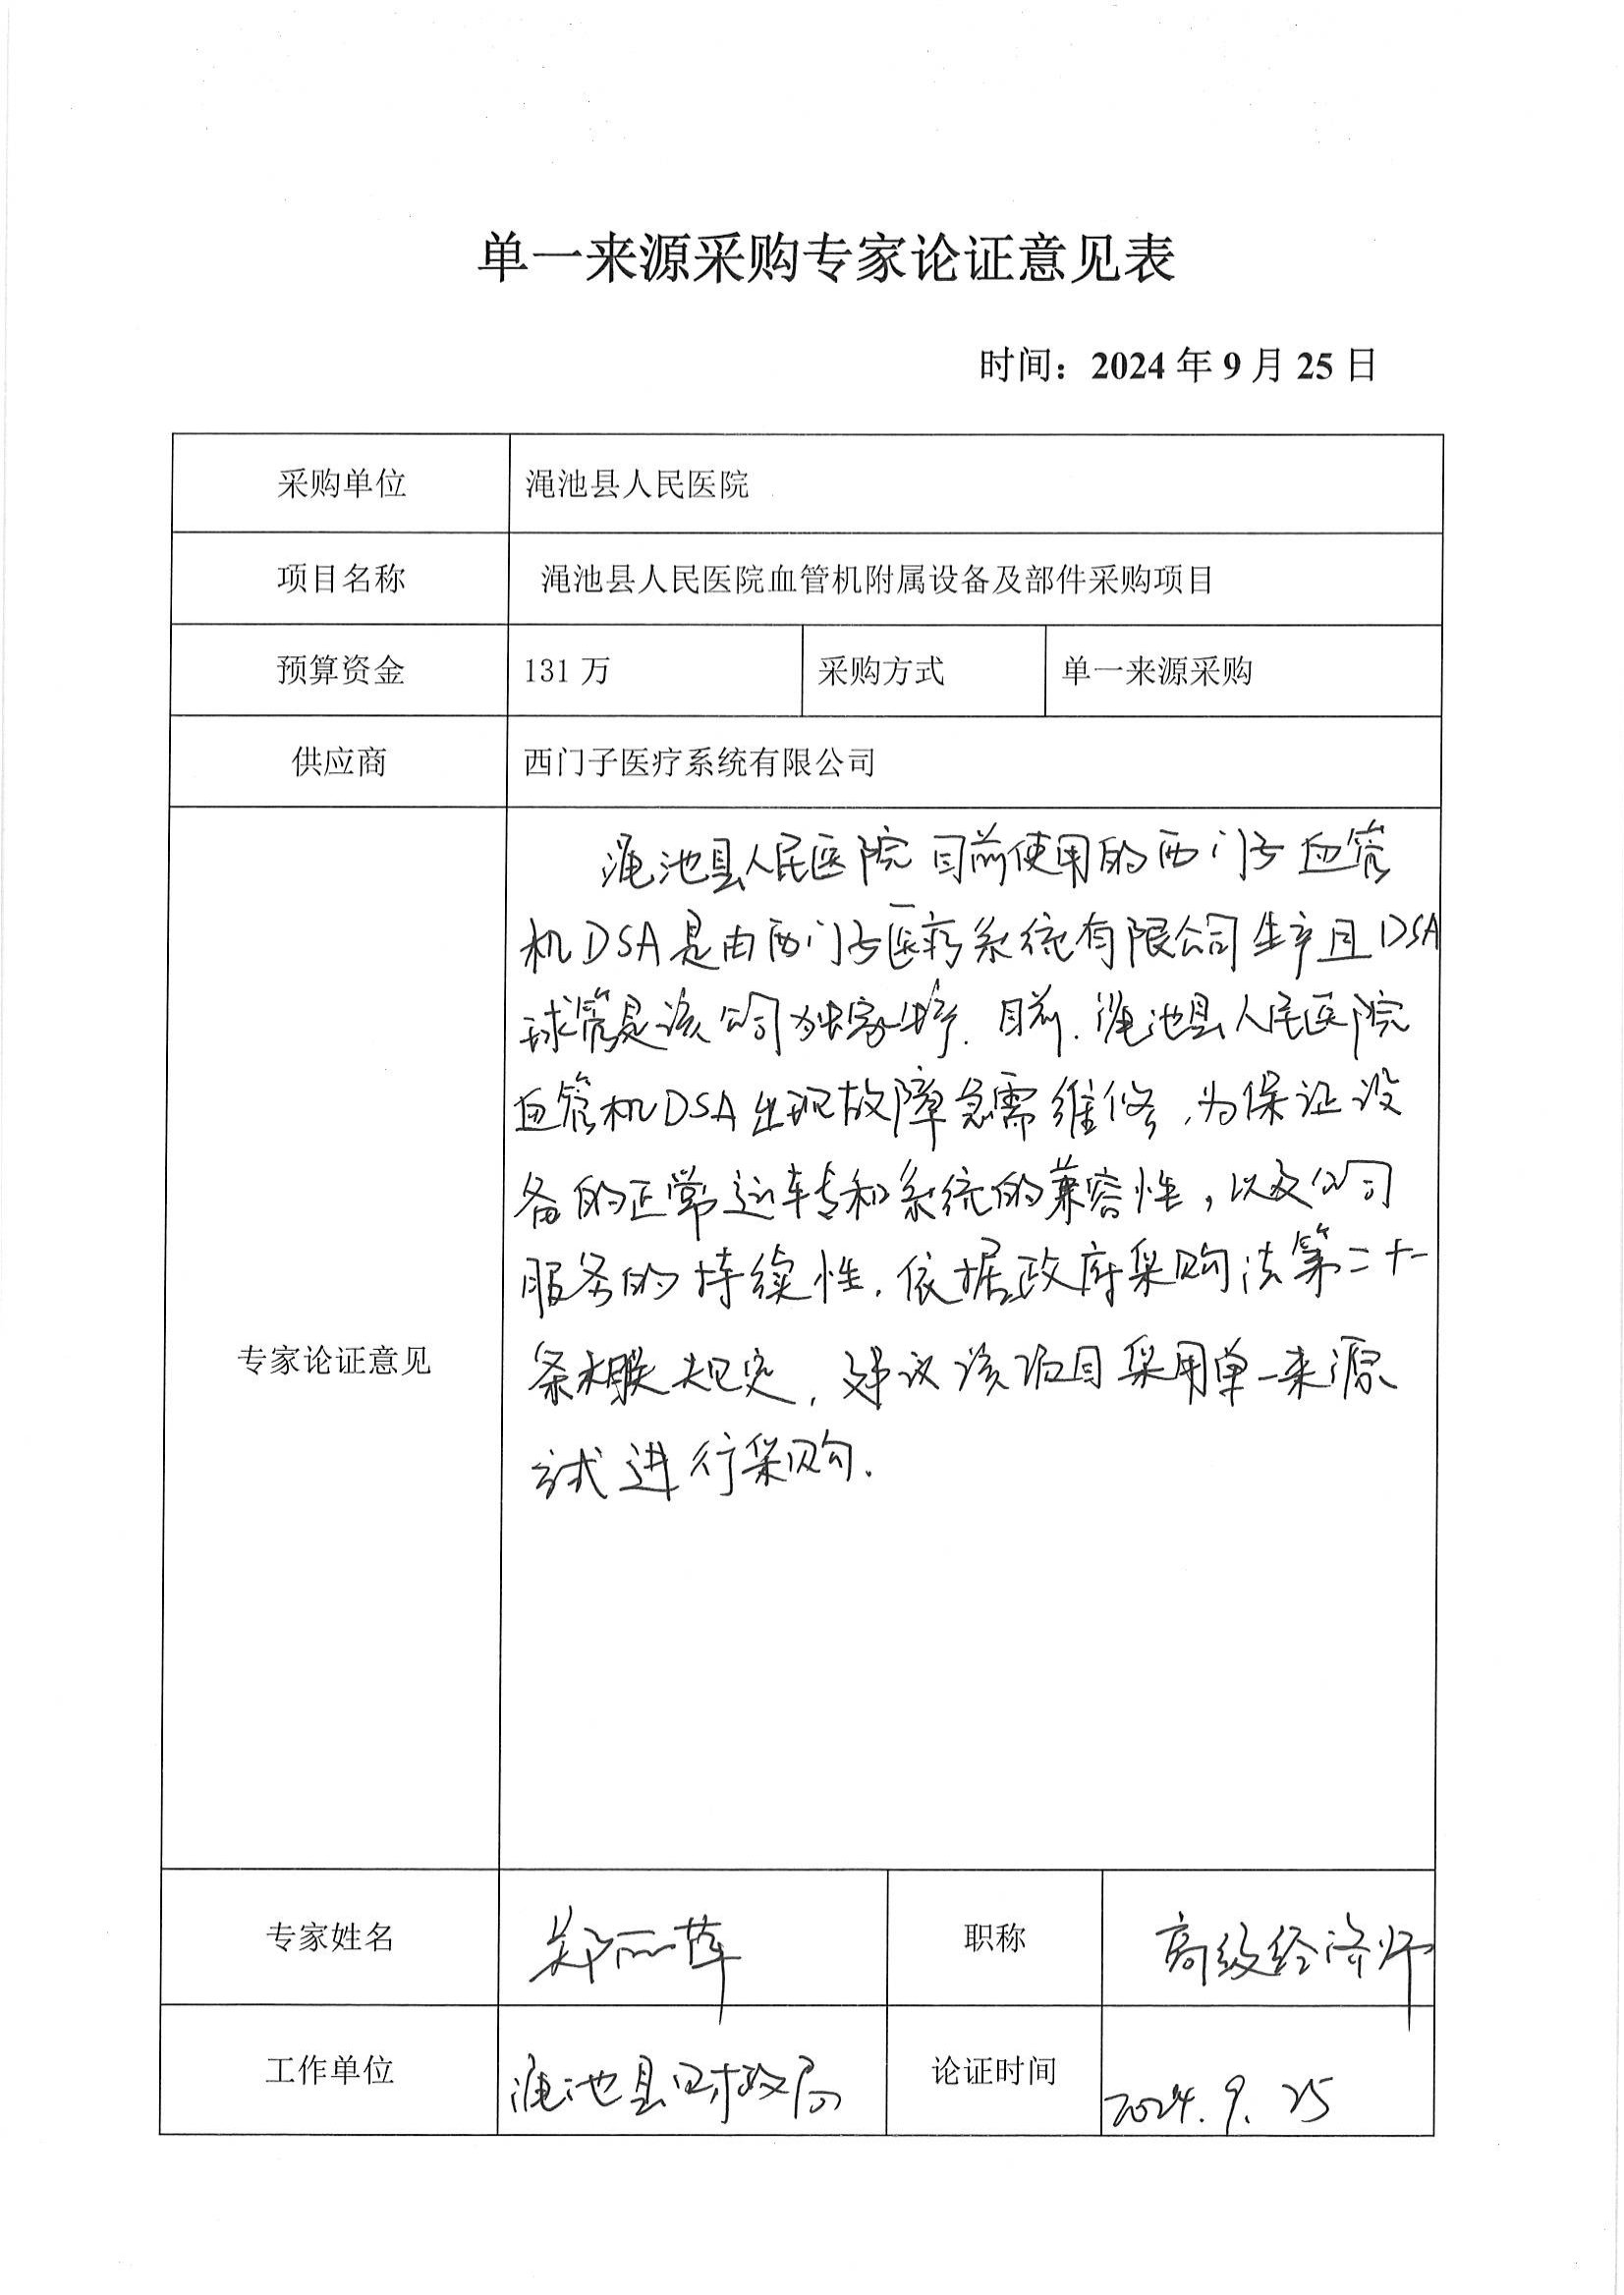 单一来源采购专家论证意见表
时间：2024 年 9 月 25 日
采购单位 渑池县人民医院
项目名称 渑池县人民医院血管机附属设备及部件采购项目
预算资金 131 万 采购方式 单一来源采购
供应商 西门子医疗系统有限公司
专家论证意见
渑池县人民医院目前使用的西门子血管
机DSA是由西门子医疗系统有限公司生产且DSA
球管是该公司独家生产.目前.渑池县人民医院
血管机DSA出现故障急需维修,为保证设
备的正常运转和系统的兼容性,以及公司
服务的持续性.依据政府采购法第三十一
条相关规定,建议该项目采用单一来源
式进行采购.
专家姓名 郑丽萍 职称 高级经济师
工作单位 渑池县财政局 论证时间 2024.9.25